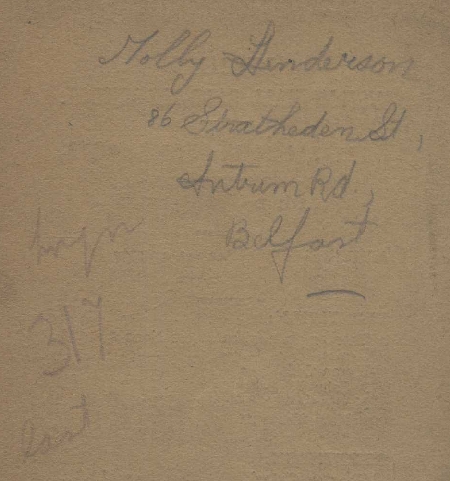 Molly Henderson
86 Stratheden St,
Antrim Rd.,
Belfast
317